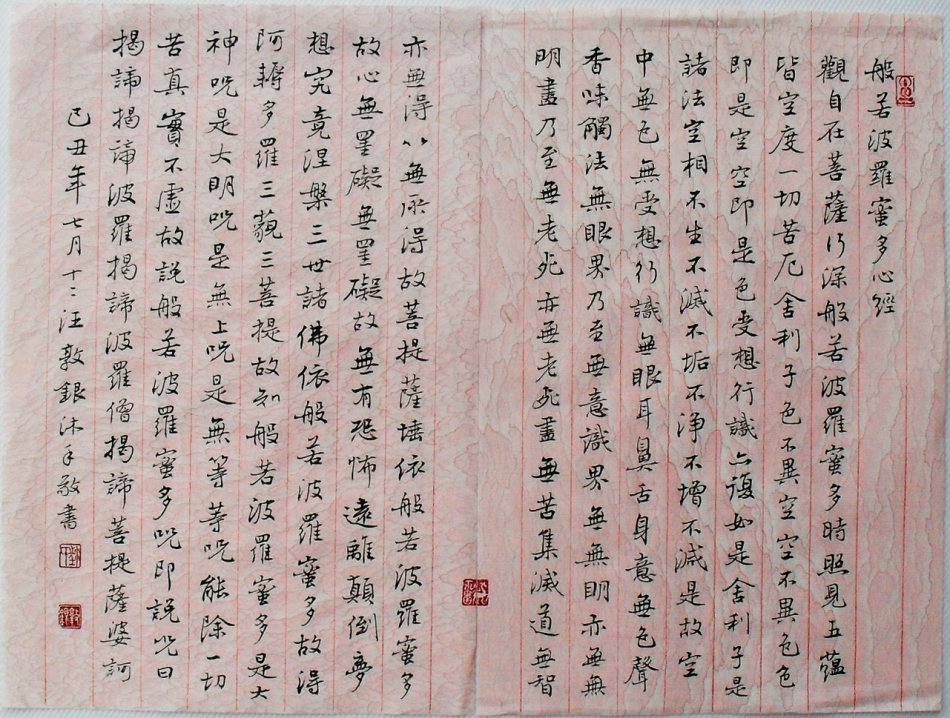 般若波羅蜜多心經
觀自在菩薩行深般若波羅蜜多時照見五蘊
皆空度一切苦厄舍利子色不異空空不異色色
即是空空即是色受想行識亦復如是舍利子是
諸法空相不生不滅不垢不淨不增不減是故空
中無色無受想行識無眼耳鼻舌身意無色聲
香味觸法無眼界乃至無意識界無無明亦無無
明盡乃至無老死亦無老死盡無苦集滅道無智
亦無得以無所得故菩提薩埵依般若波羅蜜多
故心無罣礙無罣礙故無有恐怖遠離顛倒夢
想究竟涅槃三世諸佛依般若波羅蜜多故得
阿耨多羅三藐三菩提故知般若波羅蜜多是大
神咒是大明咒是無上咒是無等等咒能除一切
苦真實不虛故說般若波羅蜜多咒即說咒曰
揭諦揭諦波羅揭諦波羅僧揭諦菩提薩婆訶
己丑年七月十二汪敦銀沐手敬書